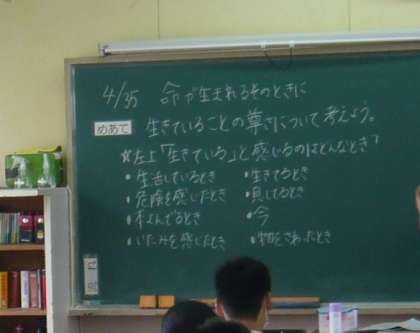 4/35 命が生まれるそのときに
めあて 生きていることの尊さについて考えよう。
「生きている」と感じるのはどんなとき?
・生活しているとき
・生きてるとき
・危険を感じたとき
・息してるとき
・今
・いたみを感じたとき
・物をさわったとき